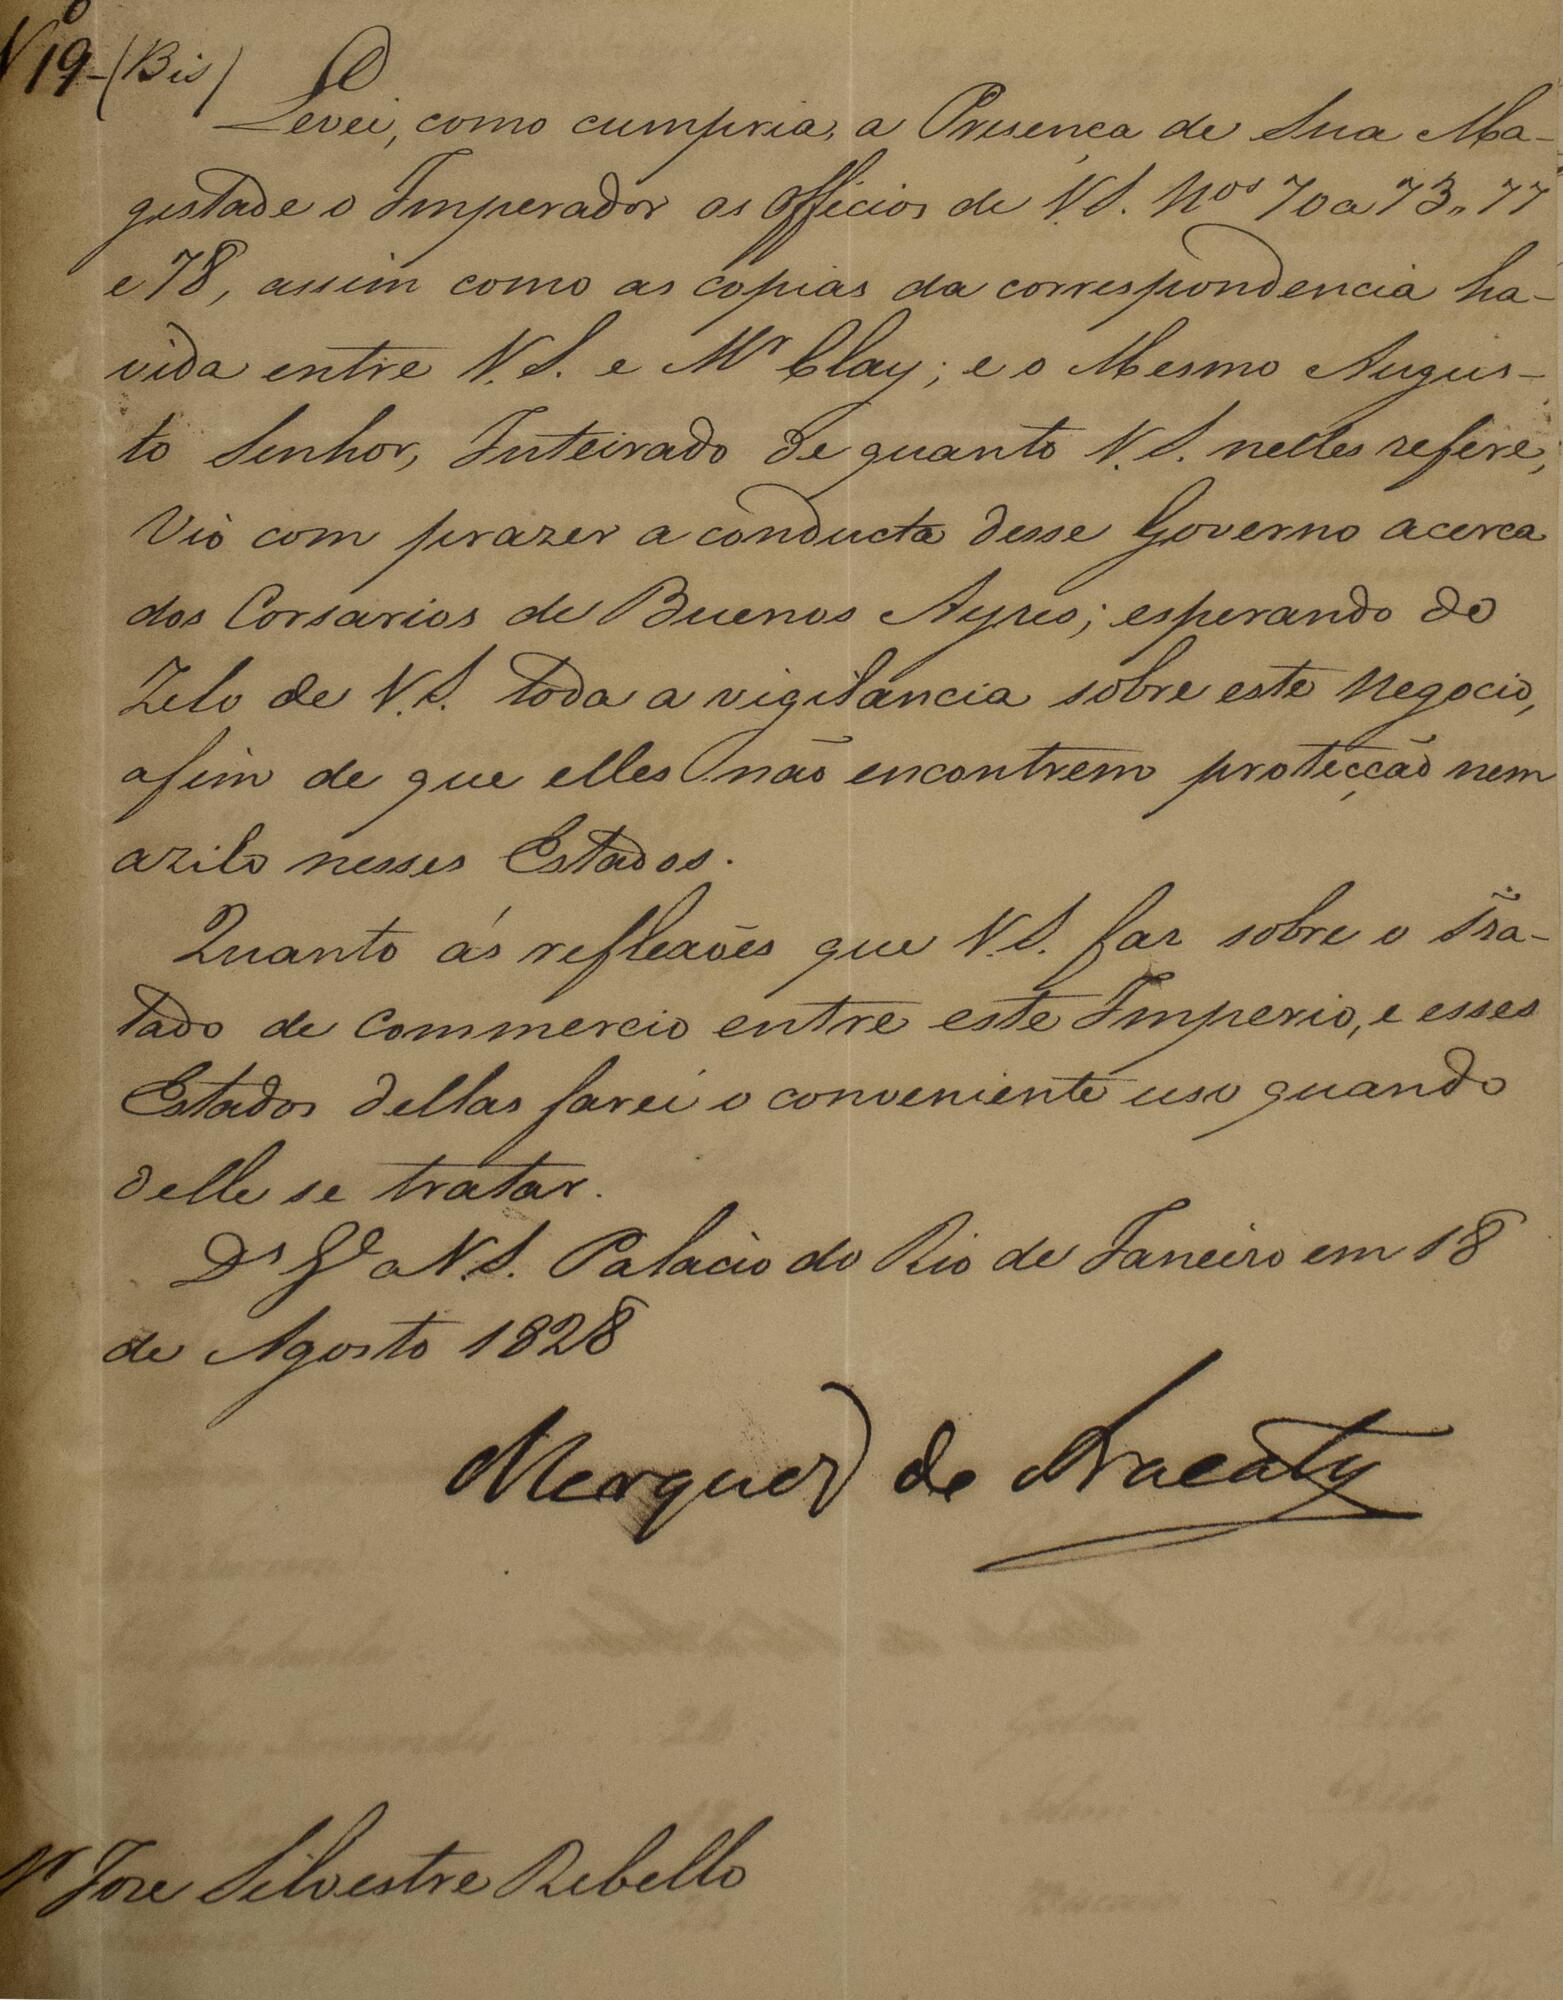 Nº 19 - (Bis)
Levei, como cumpria, a Presença de Sua Ma-
gestade o Imperador os Officios de V.S. Nos 70 a 73, 77
e 78, assim como as copias da correspondencia ha-
vida entre V.S. e Mr Clay; e o Mesmo Augus-
to Senhor, Inteirado de quanto V.S. nelles refere,
Vio com prazer a conducta desse Governo acerca
dos Corsarios de Buenos Ayres; esperando do
Zelo de V.S. toda a vigilancia sobre este Negocio,
afim de que elles não encontrem protecção nem
azilo nesses Estados.
Quanto ás reflexões que V.S. faz sobre o Tra-
tado de Commercio entre este Imperio, e esses
Estados dellas farei o conveniente uso quando
delle se tratar.
Ds Ge a V.S. Palacio do Rio de Janeiro em 18
de Agosto 1828
Marquez de Aracaty
Sr Jose Silvestre Rebello